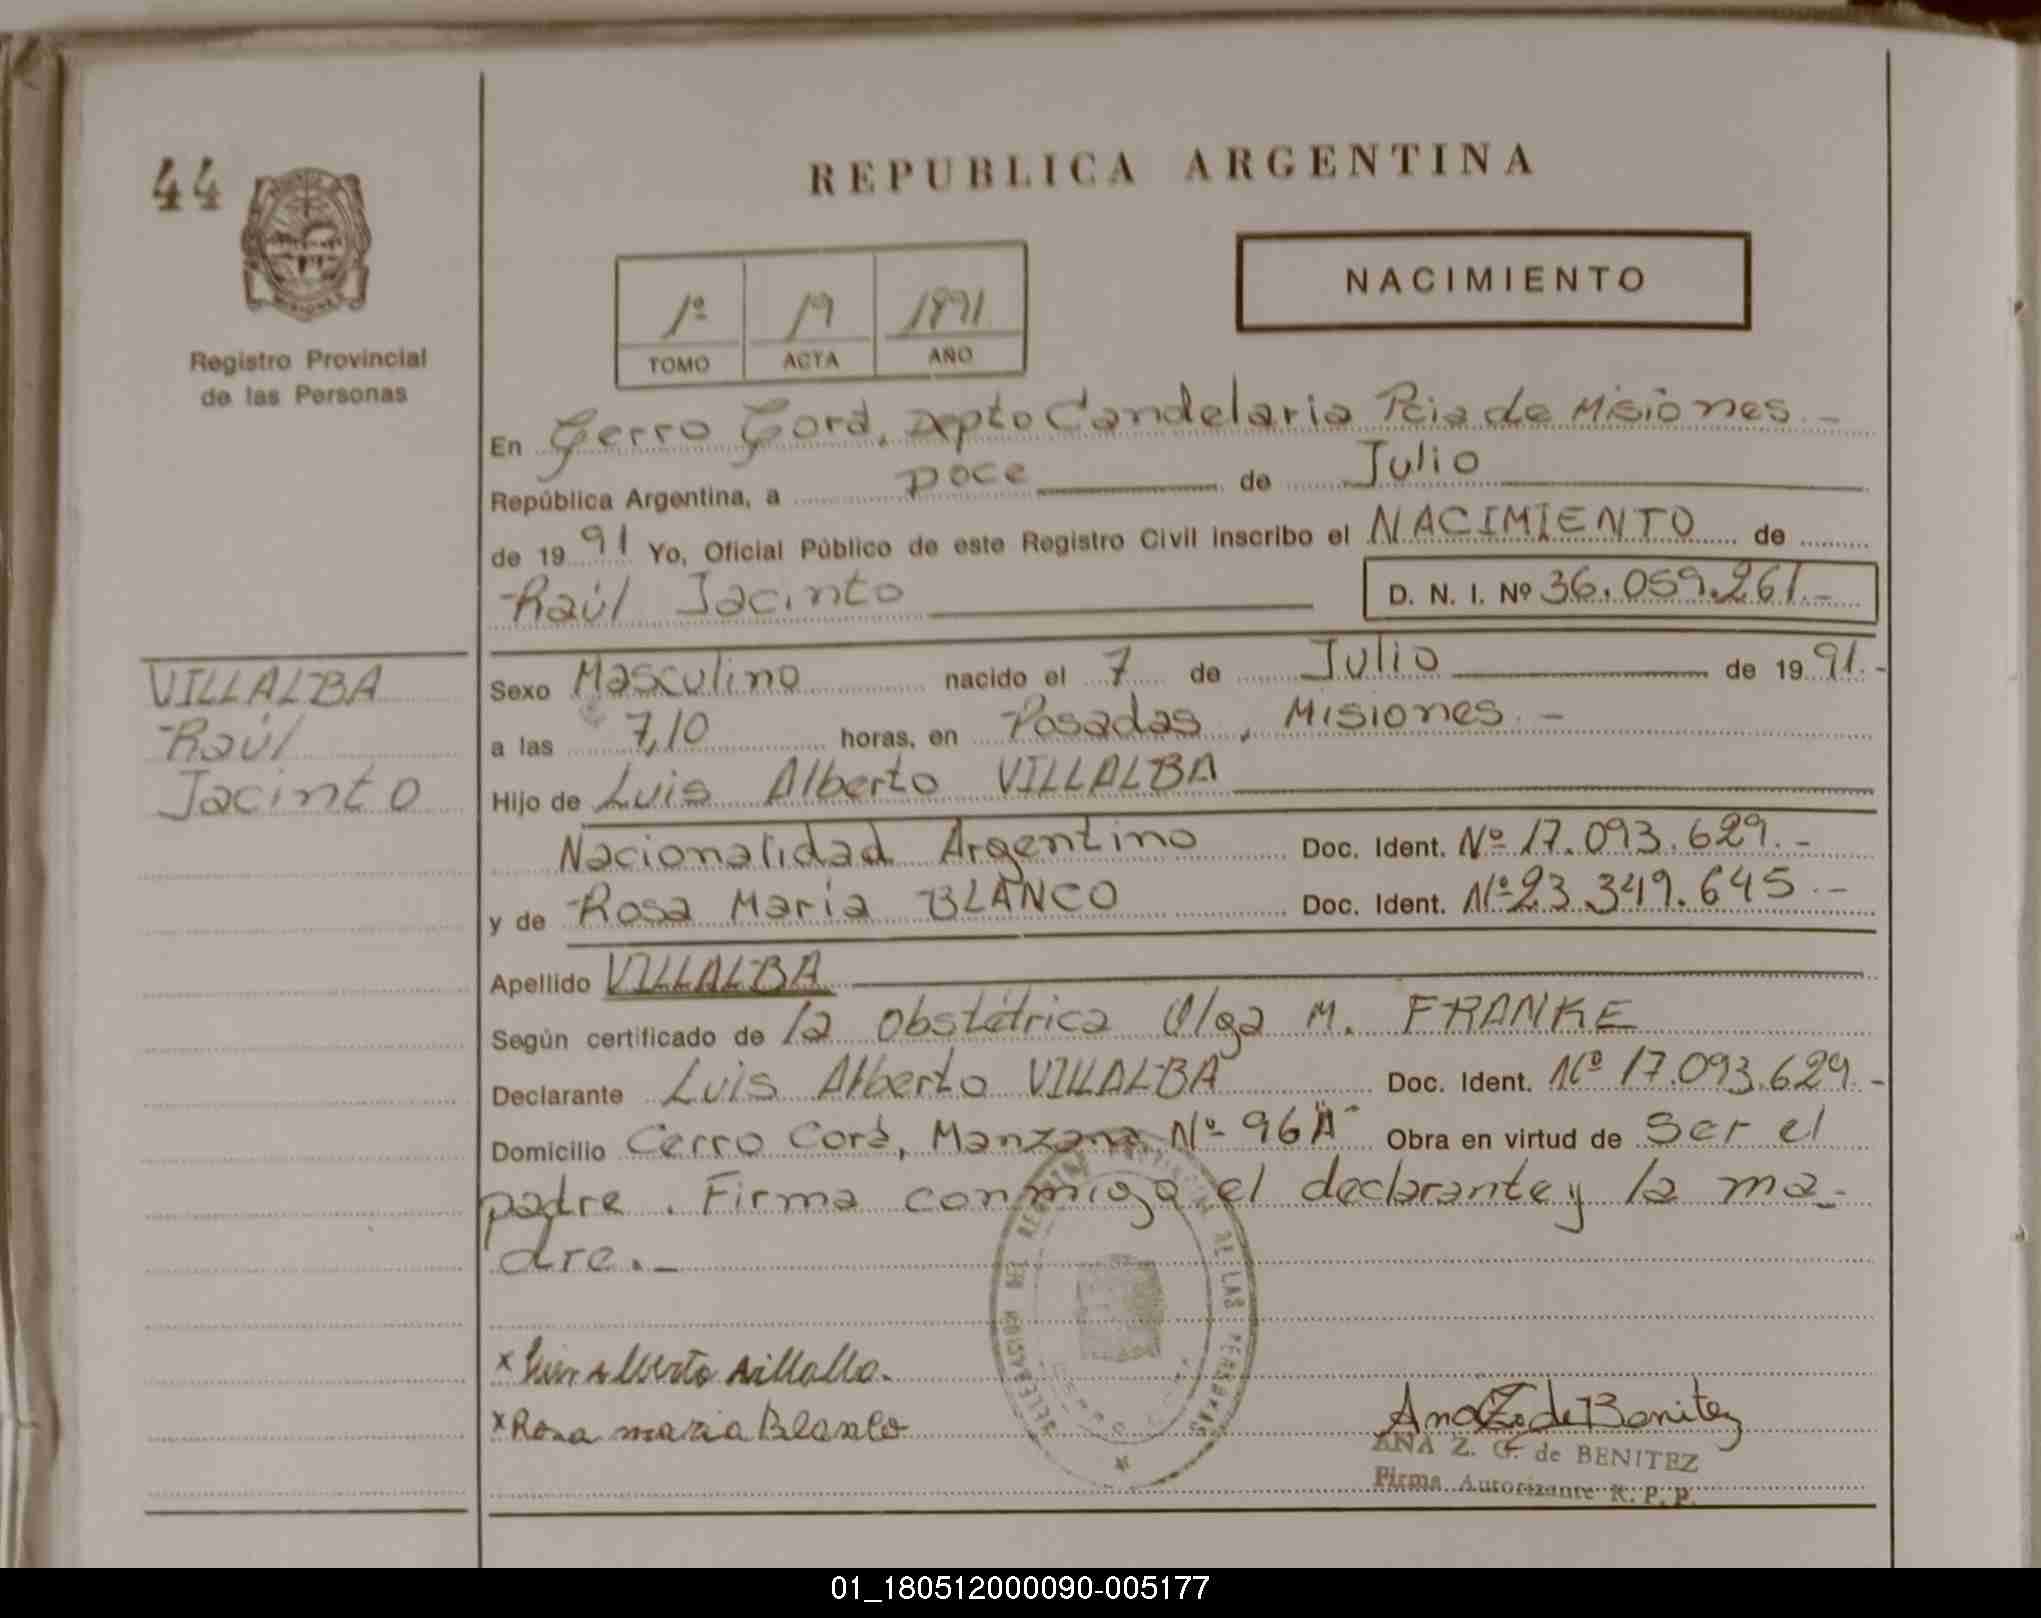 44
REPUBLICA ARGENTINA
NACIMIENTO
1º 19 1991
TOMO ACTA AÑO
Registro Provincial
de las Personas
En Cerro Corá, Dpto Candelaria Pcia de Misiones.-
República Argentina, a Doce de Julio
de 19 91 Yo, Oficial Público de este Registro Civil inscribo el NACIMIENTO de
Raúl Jacinto D. N. I. Nº 36.059.261.-
VILLALBA
Raúl
Jacinto
Sexo Masculino nacido el 7 de Julio de 19 91.-
a las 7,10 horas, en Posadas, Misiones.-
Hijo de Luis Alberto VILLALBA
Nacionalidad Argentino Doc. Ident. Nº 17.093.629.-
y de Rosa Maria BLANCO Doc. Ident. Nº 23.349.645.-
Apellido VILLALBA
Según certificado de la obstétrica Olga M. FRANKE
Declarante Luis Alberto VILLALBA Doc. Ident. Nº 17.093.629.-
Domicilio Cerro Corá, Manzana Nº 96 "A" Obra en virtud de ser el
padre. Firma conmigo el declarante y la ma-
dre.-
DELEGACION DE REGISTRO PROVINCIAL DE LAS PERSONAS
x Luis Alberto Villalba.
x Rosa maria Blanco
Ana Z. de Benitez
ANA Z. G. de BENITEZ
Firma Autorizante R. P. P.
01_180512000090-005177